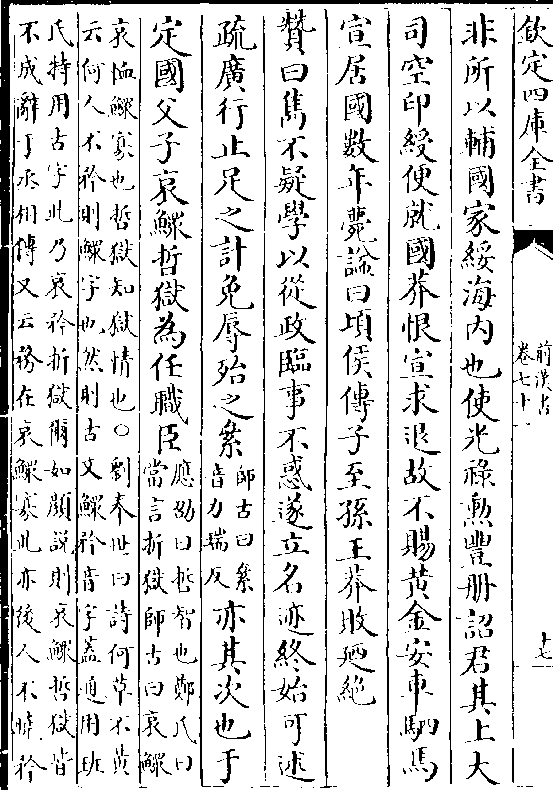 欽定四庫全書
前漢書
卷七十一
十七
非所以輔國家綏海内也使光祿勲豐册詔君其上大
司空印綬便就國莽恨宣求退故不賜黄金安車駟馬
宣居國數年薨諡曰頃侯傳子至孫王莽敗廼絶
贊曰雋不疑學以從政臨事不惑遂立名迹終始可述
疏廣行止足之計免辱殆之絫師古曰絫音力瑞反亦其次也于
定國父子哀鰥哲獄為任職臣應劭曰哲智也鄭氏曰當言折獄師古曰哀鰥
哀恤鰥寡也哲獄知獄情也○劉奉世曰詩何草不黄
云何人不矜則鰥字也然則古文鰥矜音字葢通用班
氏特用古字此乃哀矜折獄爾如顔説則哀鰥哲獄皆
不成辭于丞相傳又云務在哀鰥寡此亦後人不曉矜